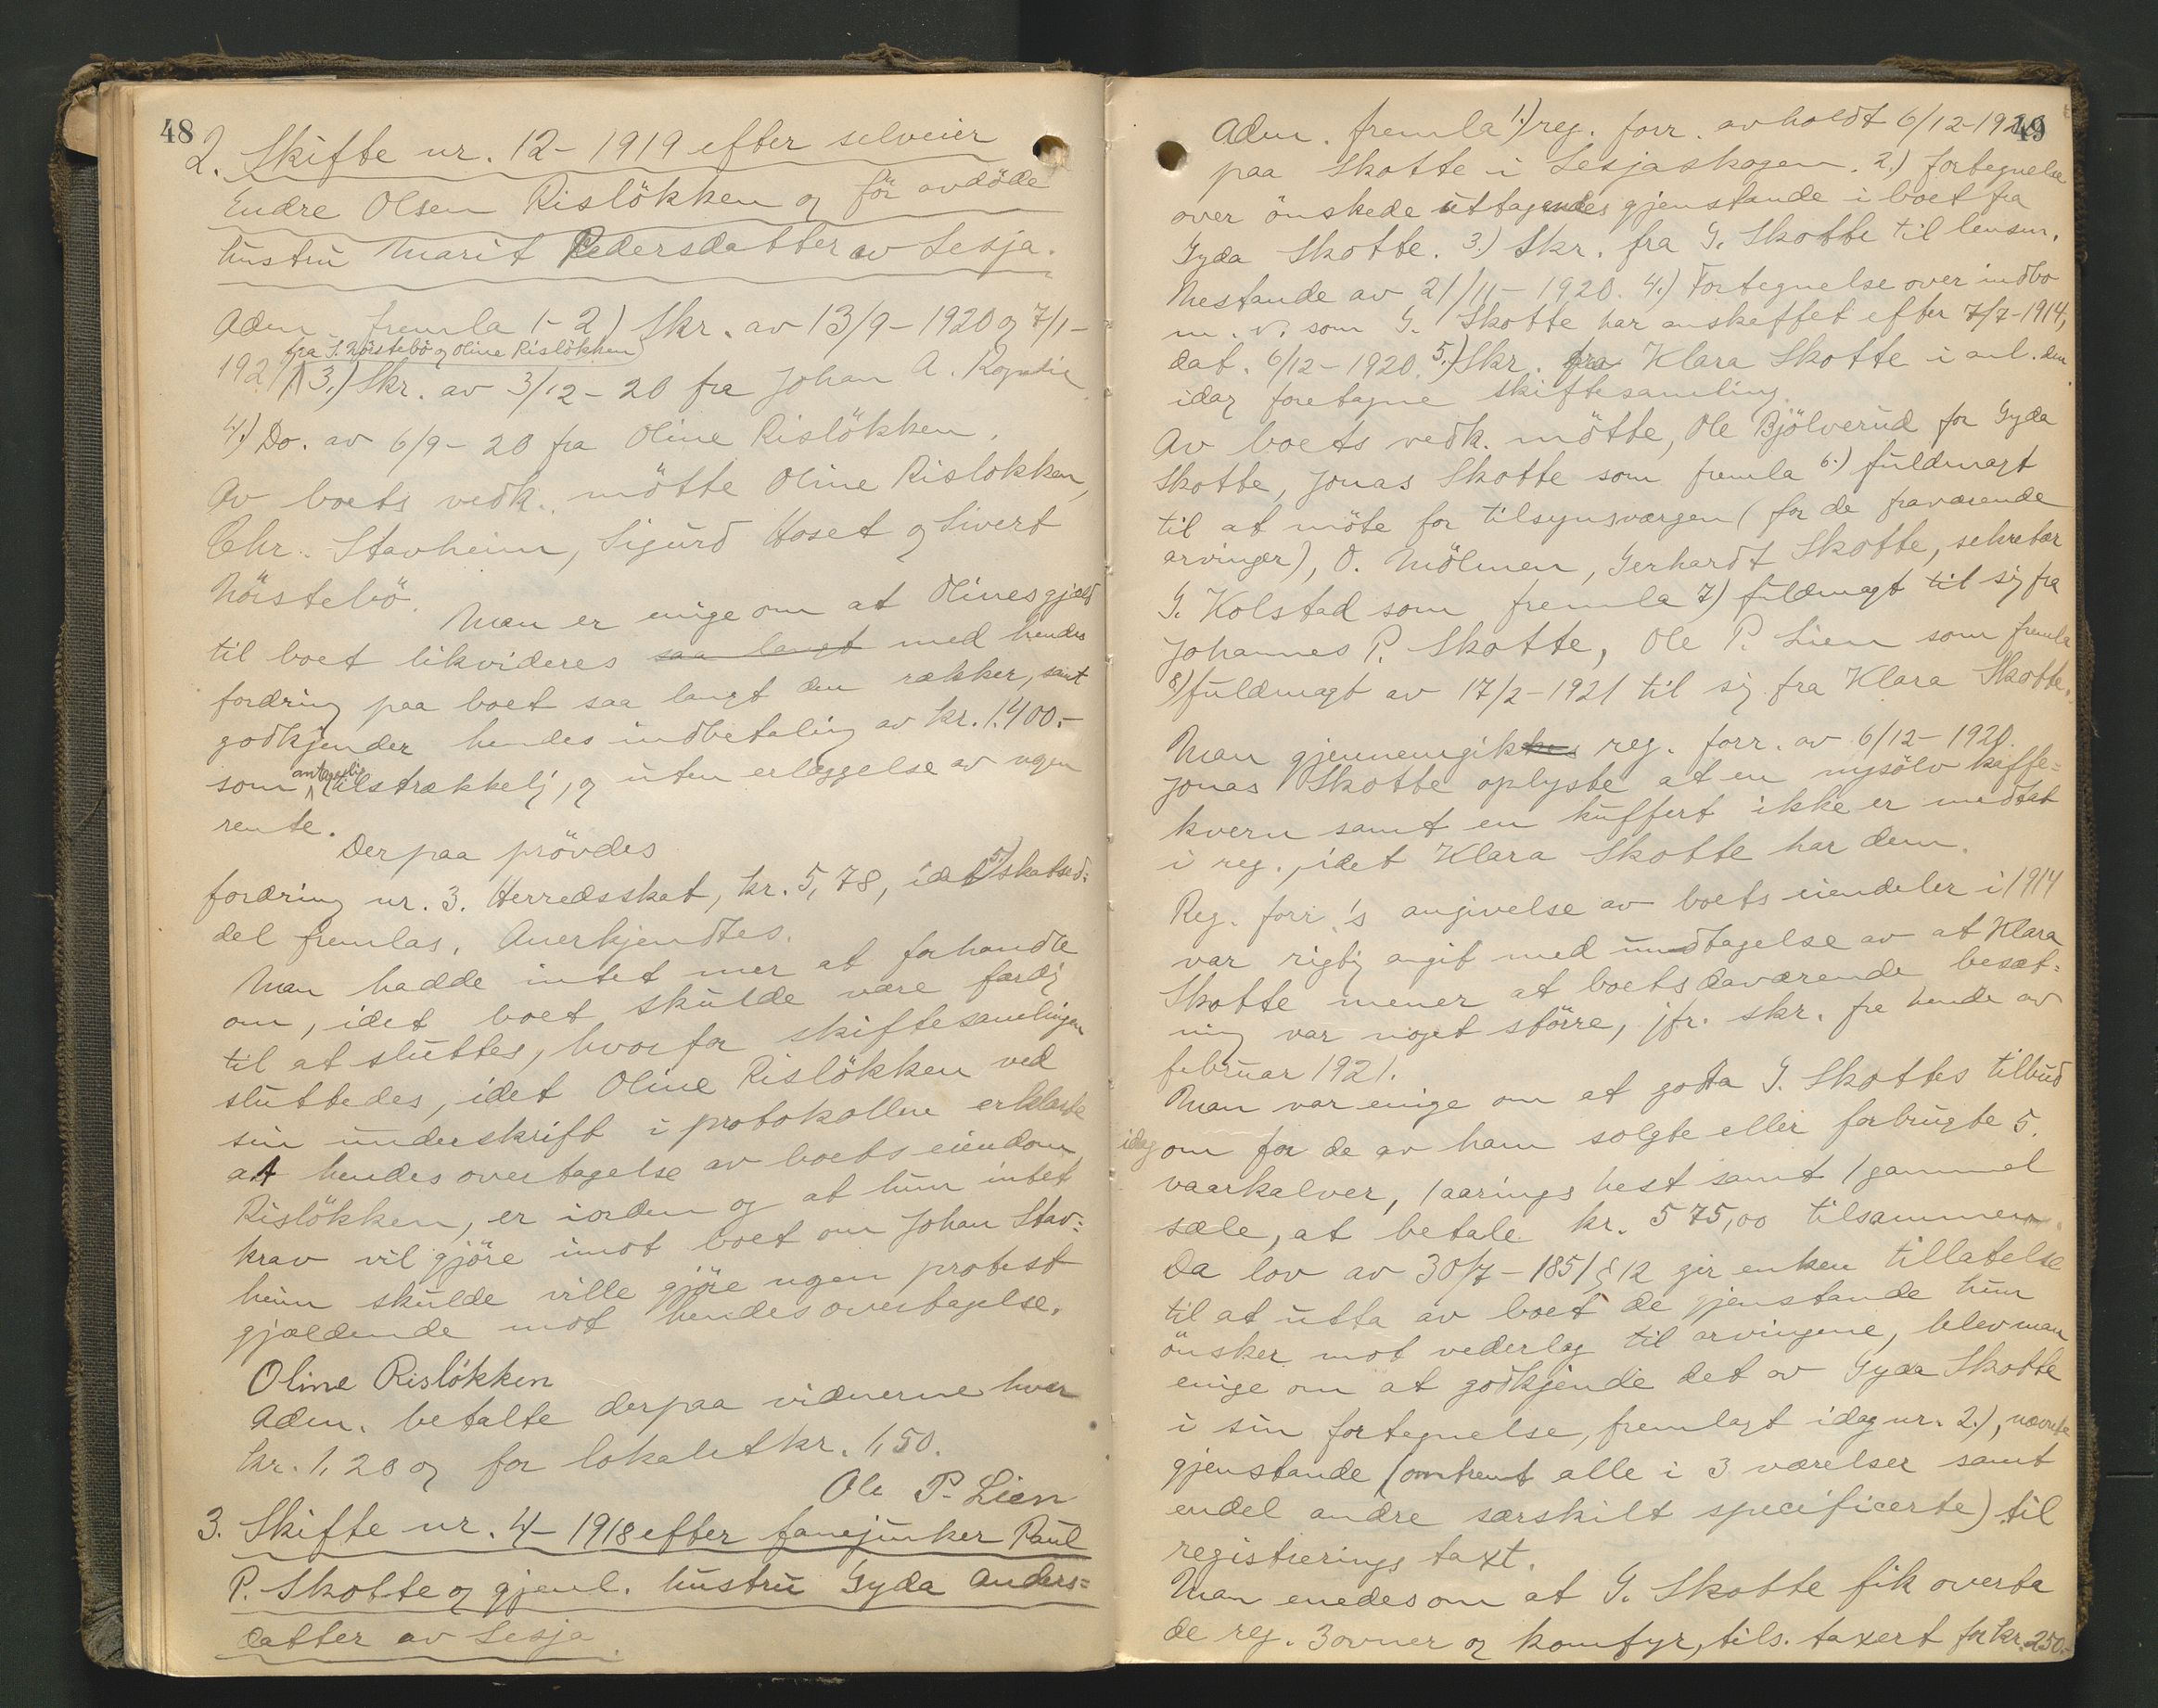 48
2. Skifte nr. 12-1919 efter selveier
Endre Olsen Rislökken og för avdöde
hustru Marit Pedersdatter av Lesja.
Adm. fremla 1-2) Skr. av 13/9-1920 og 7/1-
fra S. Nörstebö og Oline Rislökken
1921 3.) Skr. av 3/12-20 fra Johan A.
4.) Do. av 6/9-20 fra Oline Rislökken.
Av boets vedk. mötte Oline Rislökken,
Chr. Stavheim, Sigurd Hoset og Sivert
Nörstebö.
Man er enige om at Olines gjæld
til boet likvideres saa langt med hendes
fordring paa boet saa langt den rækker, samt
godkjender hendes indbetaling av kr. 1.400.-
antagelig
som tilstrækkelig, og uten erlæggelse av nogen
rente.
Derpaa prövdes
fordring nr. 3. Herredsskat, kr. 5,78, idet 5.) skatsed-
del fremlas. Anerkjendtes.
Man hadde intet mer at forhandle
om, idet boet skulde være færdig
til at sluttes, hvorfor skiftesamlingen
sluttedes, idet Oline Rislökken ved
sin underskrift i protokollen erklærte
at hendes overtagelse av boets eiendom
Rislökken, er iorden og at hun intet
krav vil gjöre imot boet om Johan Stav-
heim skulde ville gjöre nogen protest
gjældende mot hendes overtagelse.
Oline Rislökken
Adm. betalte derpaa vidnerne hver
kr. 1,20 og for lokalet kr. 1,50.
Ole P. Lien
3. Skifte nr. 4-1918 efter fanejunker Paul
P. Skotte og gjenl. hustru Gyda Anders-
datter av Lesja.
49
Adm. fremla 1.) reg. forr. avholdt 6/12-1920
paa Skotte i Lesjaskogen. 2.) fortegnelse
over önskede uttagendes gjenstande i boet fra
Gyda Skotte. 3.) Skr. fra G. Skotte til lensm.
Mestande av 21/11-1920. 4.) Fortegnelse over indbo
m. v. som G. Skotte har anskaffet efter 7/7-1914,
dat. 6/12-1920. 5.) Skr. fra Klara Skotte i anl. den
idag foretagne skiftesamling.
Av boets vedk. mötte, Ole Bjölverud for Gyda
Skotte, Jonas Skotte som fremla 6.) fuldmagt
til at möte for tilsynsværgen (for de fraværende
arvinger), O. Mölmen, Gerhardt Skotte, sekretær
G. Kolstad som fremla 7) fuldmagt til sig fra
Johannes P. Skotte, Ole P. Lien som fremla
8) fuldmagt av 17/2-1921 til sig fra Klara Skotte.
Man gjennemgik reg. forr. av 6/12-1920.
Jonas Skotte oplyste at en nysölv kaffe-
kvern samt en kuffert ikke er medtat
i reg., idet Klara Skotte har dem.
Reg. forr.'s angivelse av boets eiendeler i 1914
var rigtig angit med undtagelse av at Klara
Skotte mener at boets daværende besæt-
ning var noget större, jfr. skr. fra hende av
februar 1921.
Man var enige om at godta G. Skottes tilbud
idag om for de av ham solgte eller forbrugte 5
vaarkalver, 1 aarings hest samt 1 gammel
sæle, at betale kr. 575,00 tilsammen.
Da lov av 30/7-1851 § 12 gir enken tillatelse
til at utta av boet de gjenstande hun
önsker mot vederlag til arvingene, blev man
enige om at godkjende det av Gyda Skotte
i sin fortegnelse, fremlagt idag nr. 2.), nævnte
gjenstande (omtrent alle i 3 værelser samt
endel andre særskilt specificerte) til
registrerings taxt.
Man enedes om at G. Skotte fik overta
de reg. 3 ovner og komfyr, tils. taxert for kr. 250.-